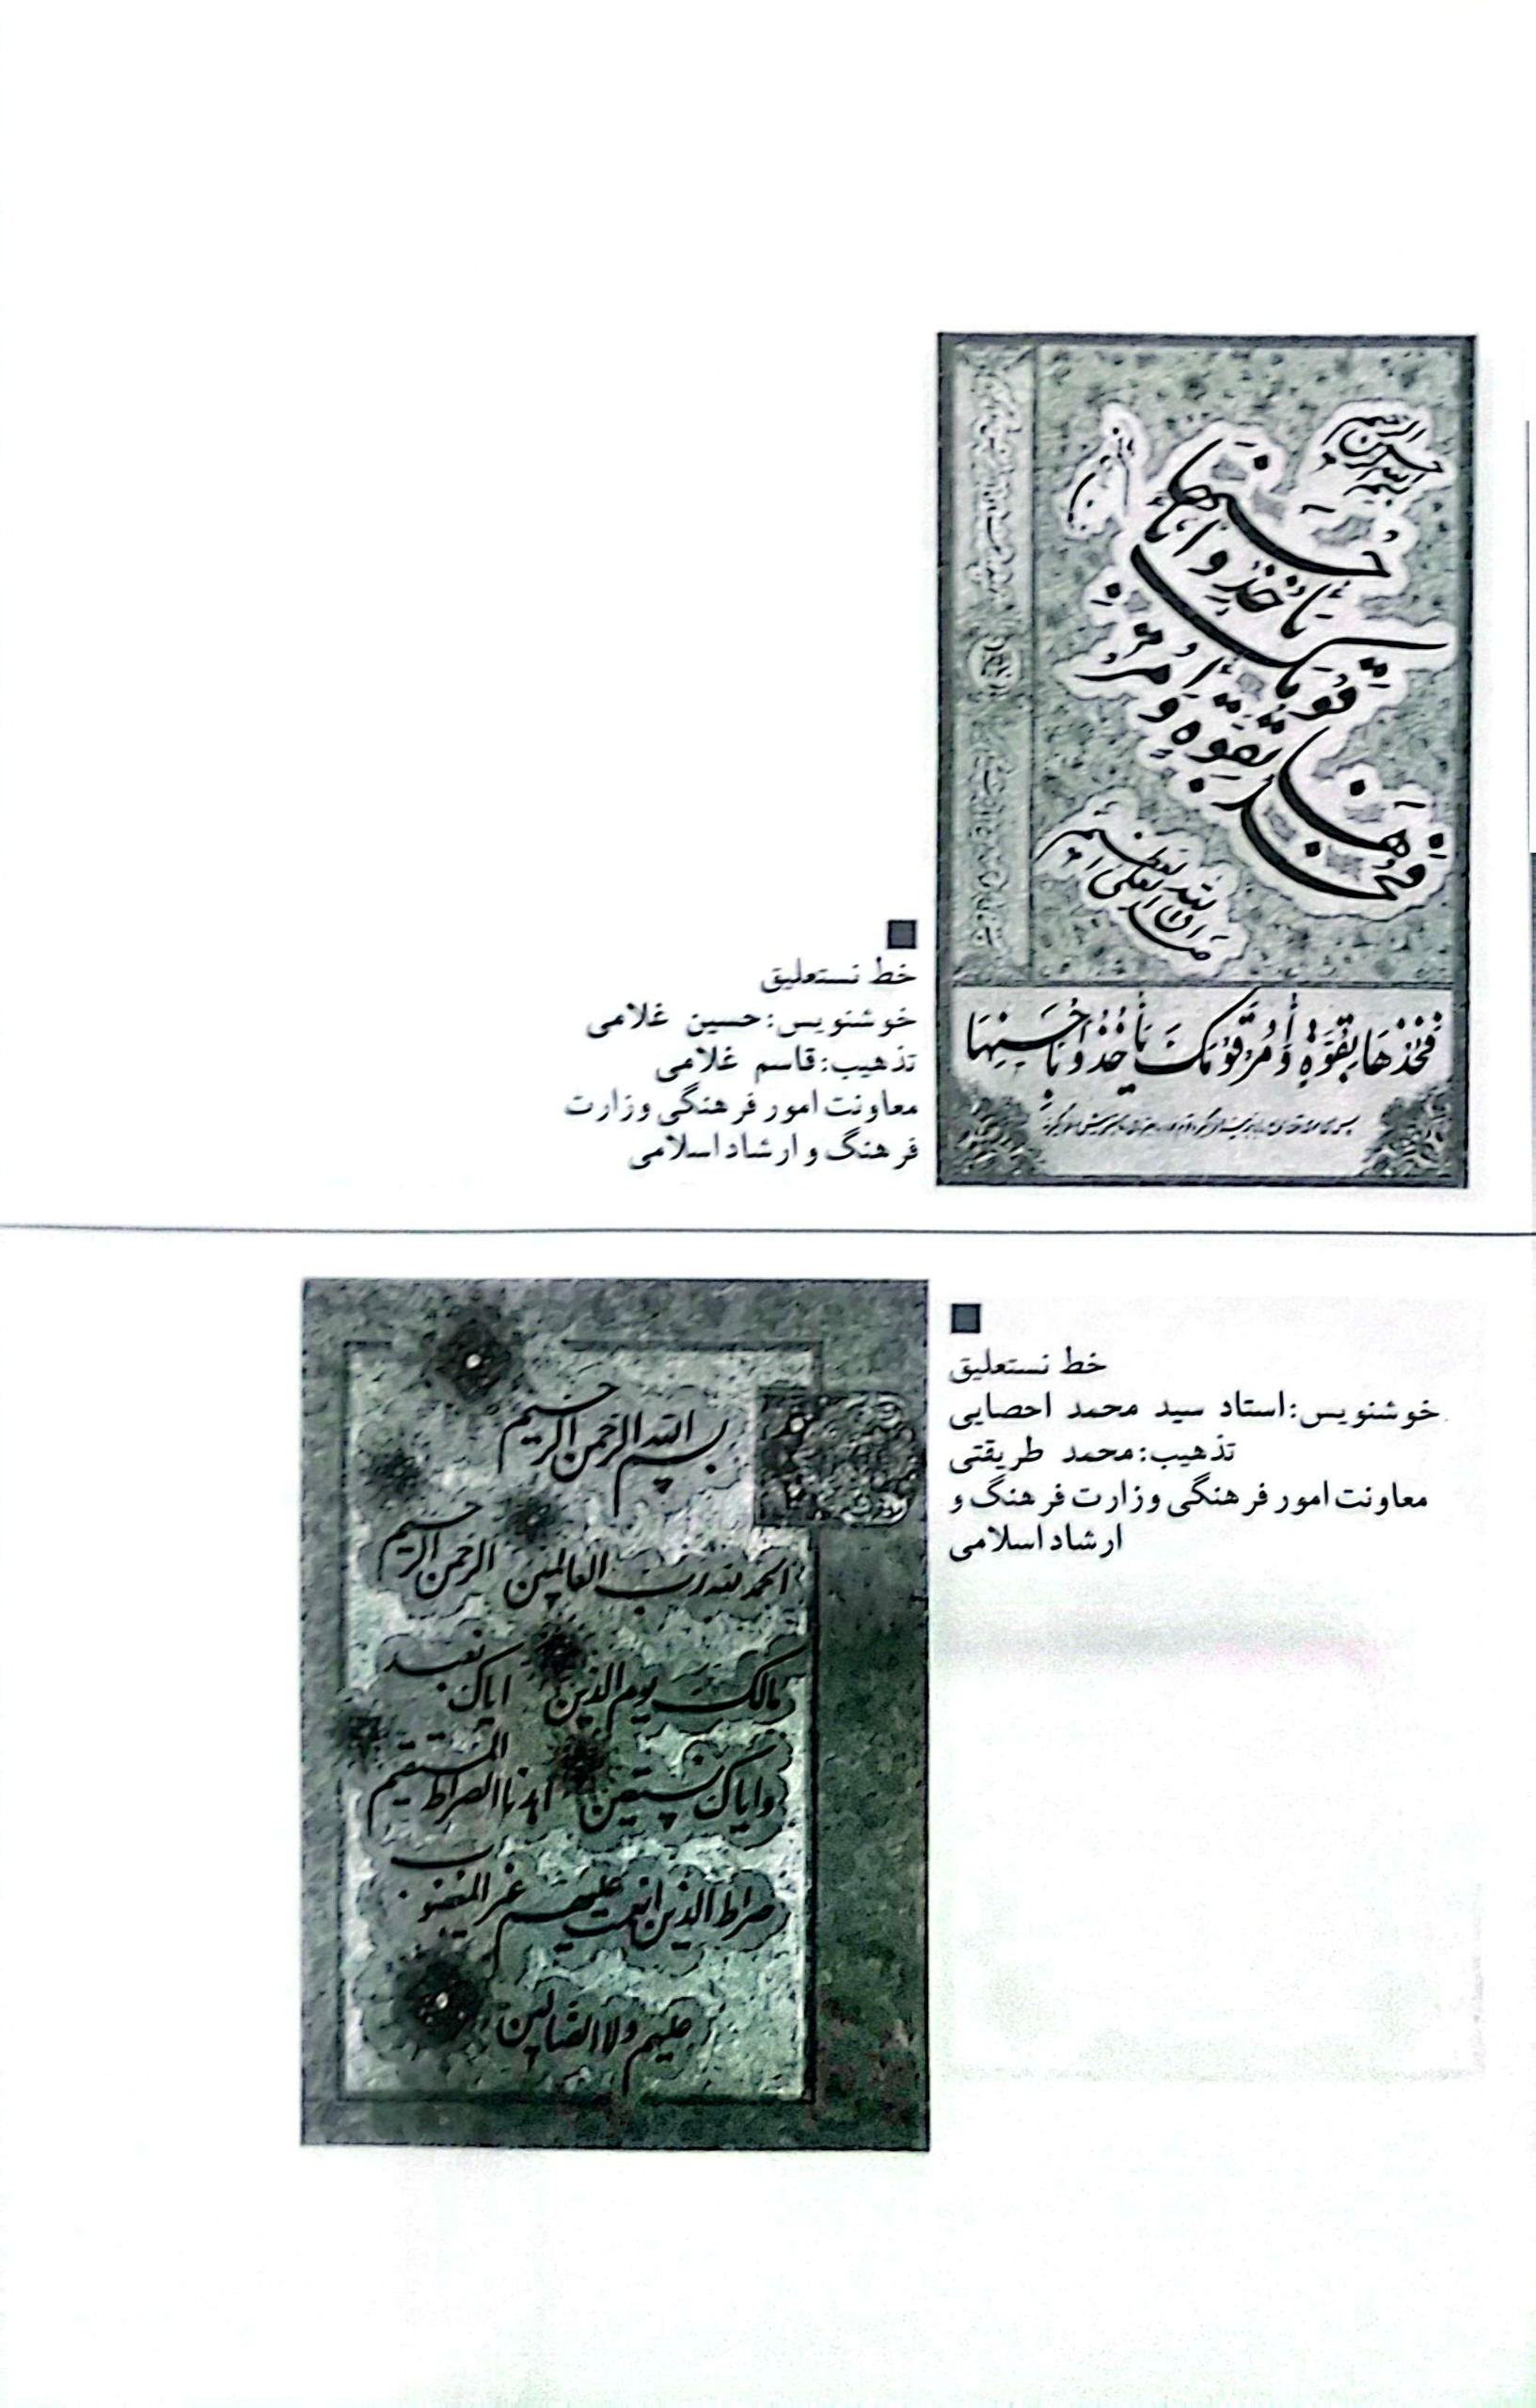 بسم الله الرحمن الرحیم
فخذها بقوة وأمر
قومك يأخذوا بأحسنها
صدق الله العلی العظیم
فَخُذْهَا بِقُوَّةٍ وَأْمُرْ قَوْمَكَ يَأْخُذُوا بِأَحْسَنِهَا
خط نستعلیق
خوشنویس: حسین غلامی
تذهیب: قاسم غلامی
معاونت امور فرهنگی وزارت
فرهنگ و ارشاد اسلامی
خط نستعلیق
خوشنویس: استاد سید محمد احصایی
تذهیب: محمد طریقتی
معاونت امور فرهنگی وزارت فرهنگ و
ارشاد اسلامی
بسم الله الرحمن الرحیم
الحمد لله رب العالمین الرحمن الرحیم
مالک یوم الدین ایاک نعبد
وایاک نستعین اهدنا الصراط المستقیم
صراط الذین انعمت علیهم غیر المغضوب
علیهم ولا الضالین